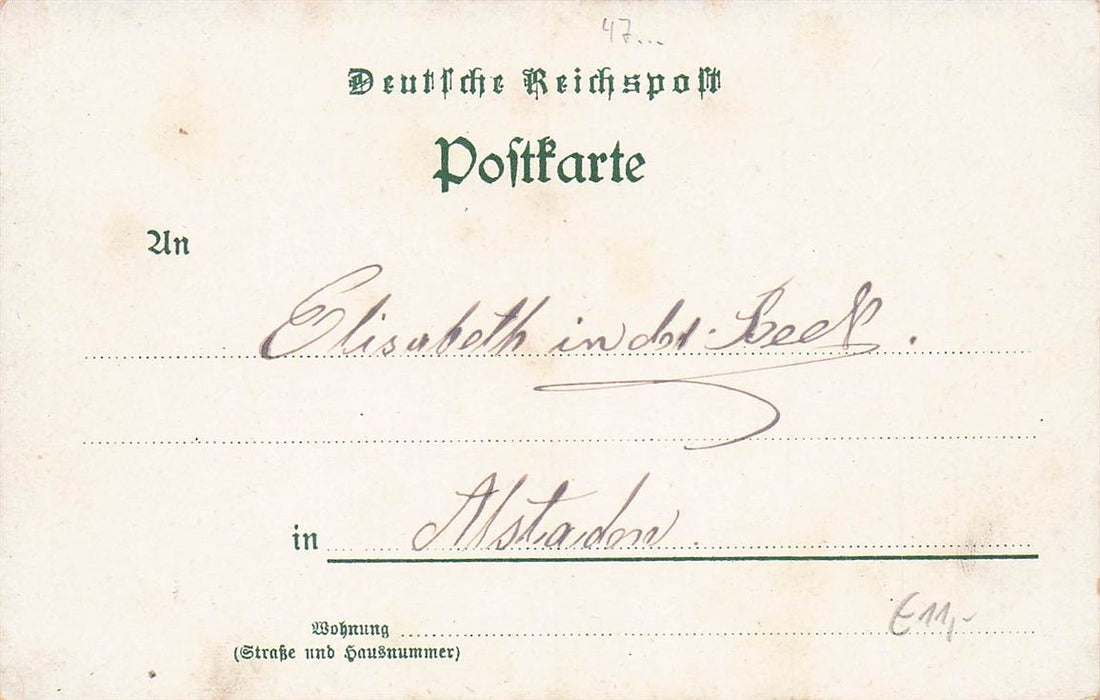 47...
Deutsche Reichspost
Postkarte
An
Elisabeth in der Beek.
in Alstaden.
€11,-
Wohnung
(Straße und Hausnummer)